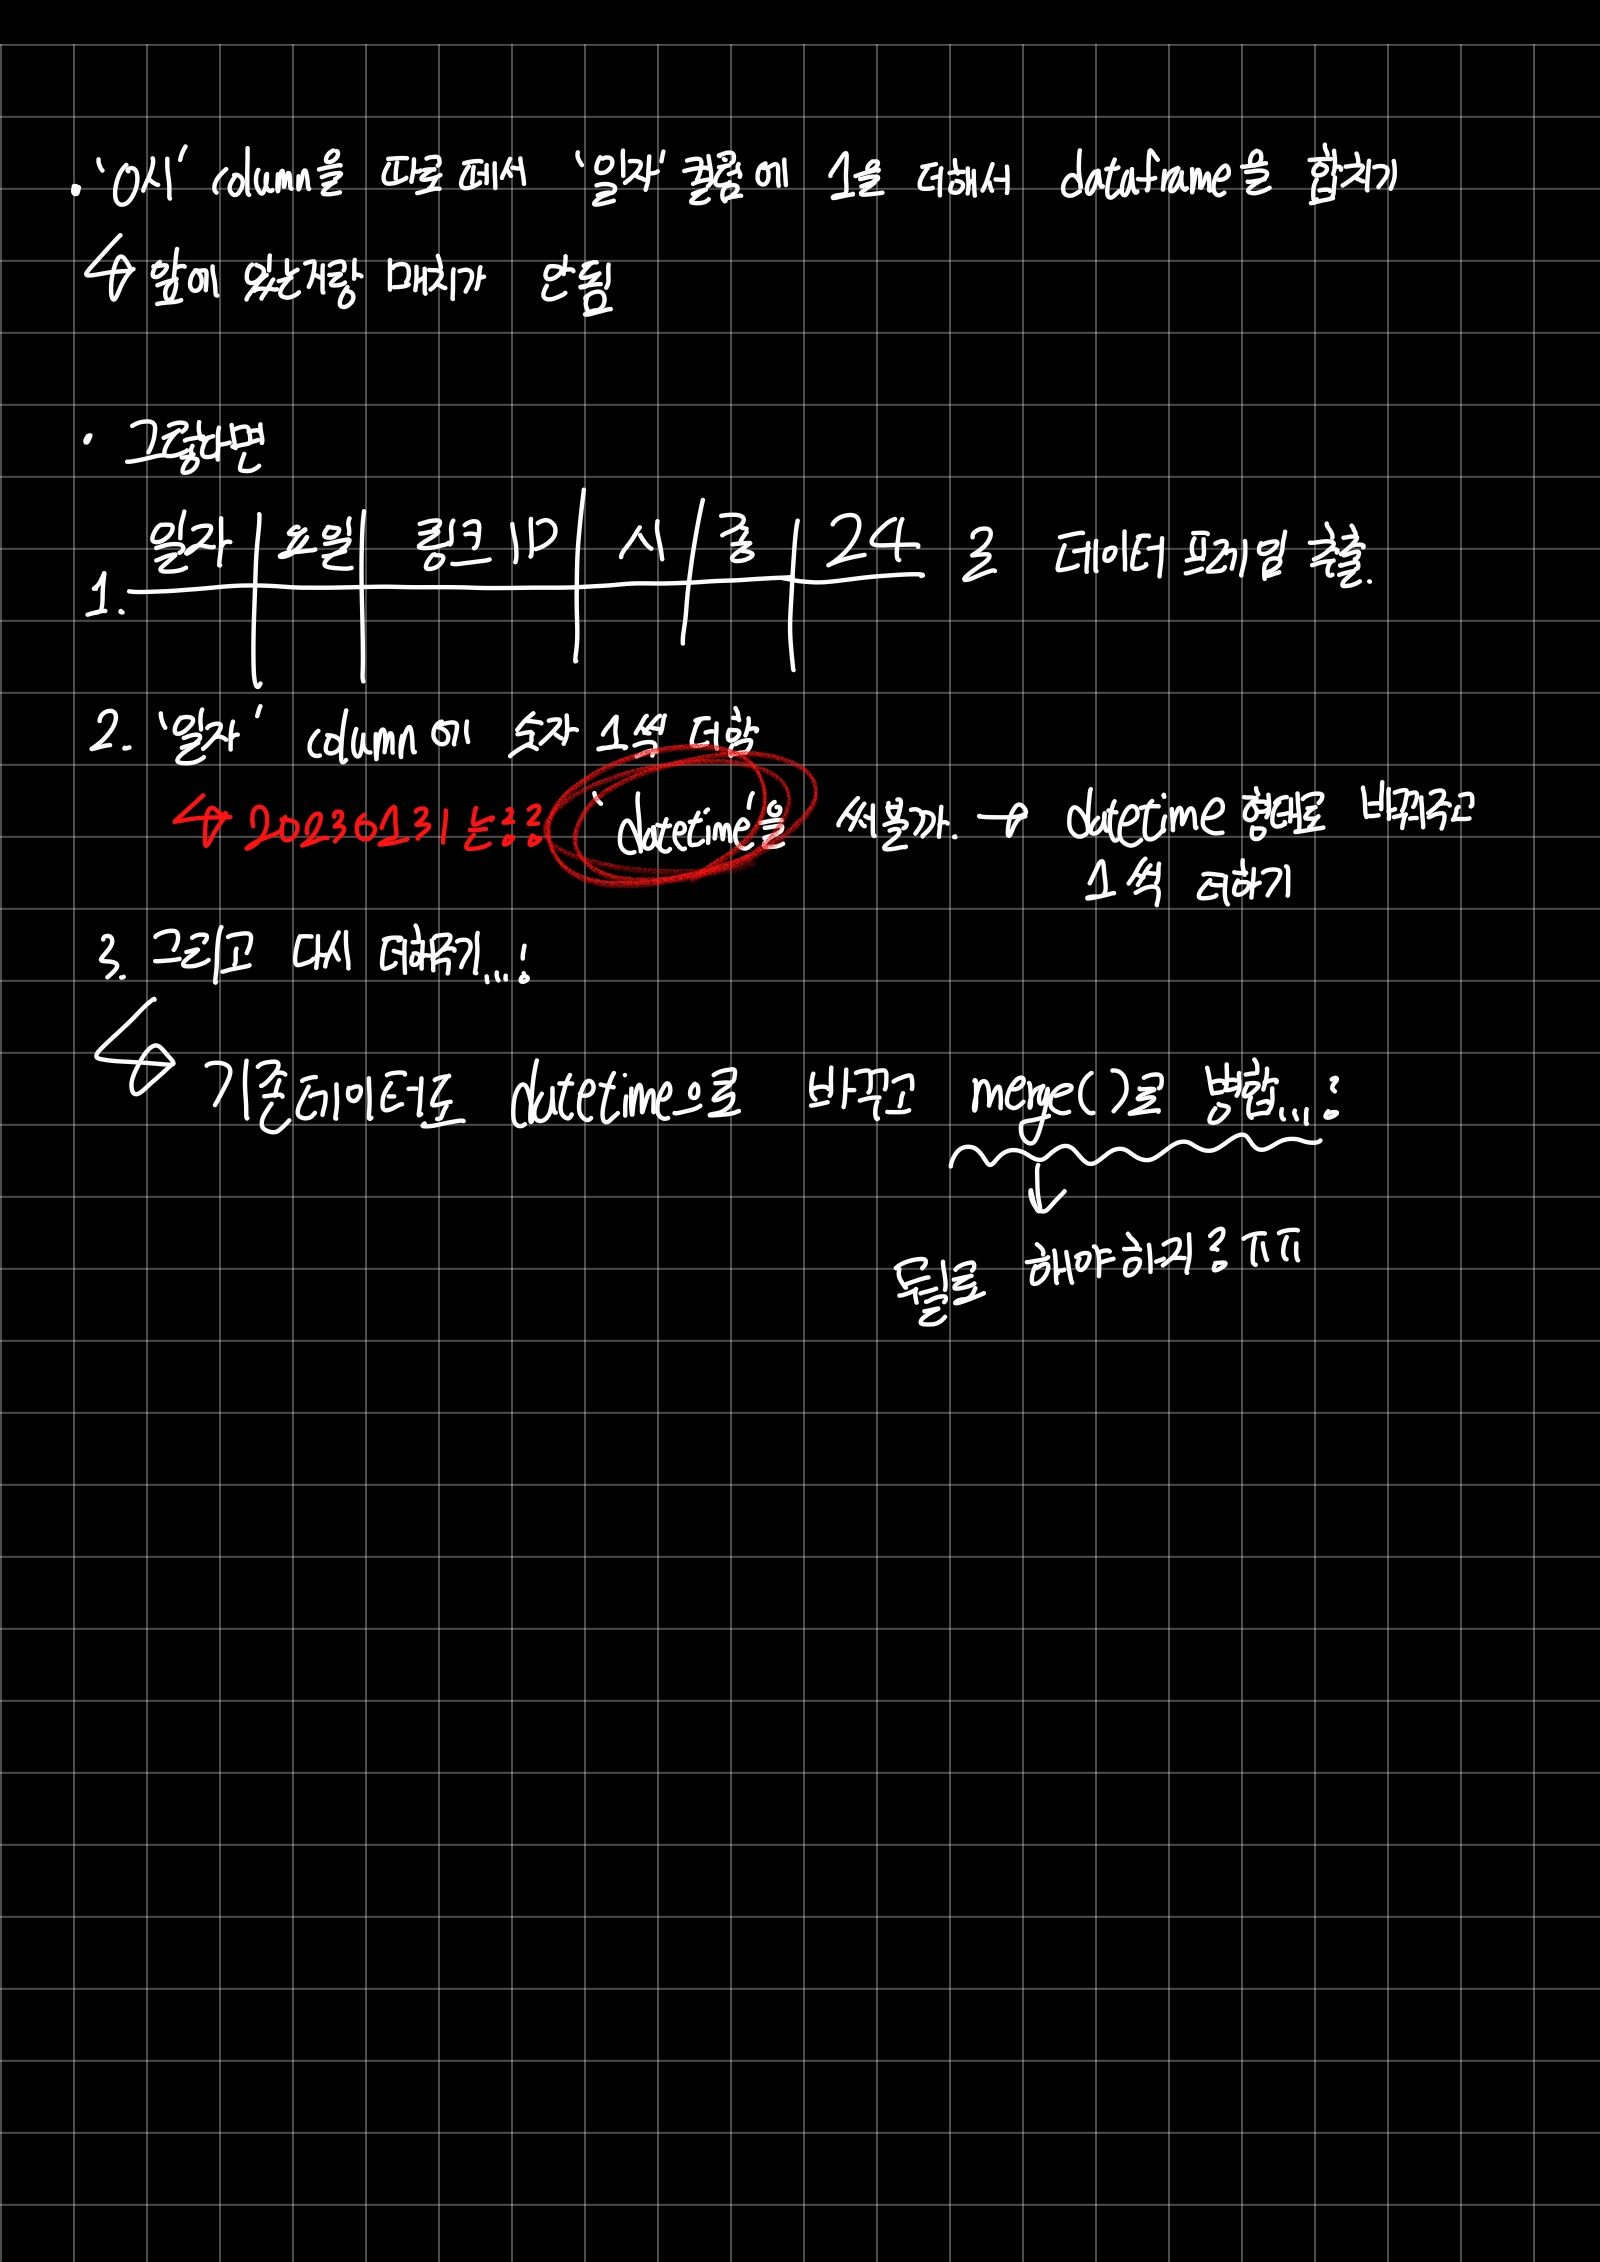 • '0시' column을 따로 떼서 '일자' 컬럼에 1을 더해서 dataframe을 합치기
↳ 앞에 있는거랑 매치가 안됨
• 그렇다면
1. 일자 | 요일 | 링크 ID | 시 / 종 | 24 로 데이터 프레임 추출.
2. '일자' column에 숫자 1씩 더함
↳ 20230131 는?? 'datetime'을 써볼까. → datetime 형태로 바꿔주고
1씩 더하기
3. 그리고 다시 더해주기...!
↳ 기존데이터도 datetime으로 바꾸고 merge()로 병합...?
↓
뭘로 해야하지? ㅠㅠ